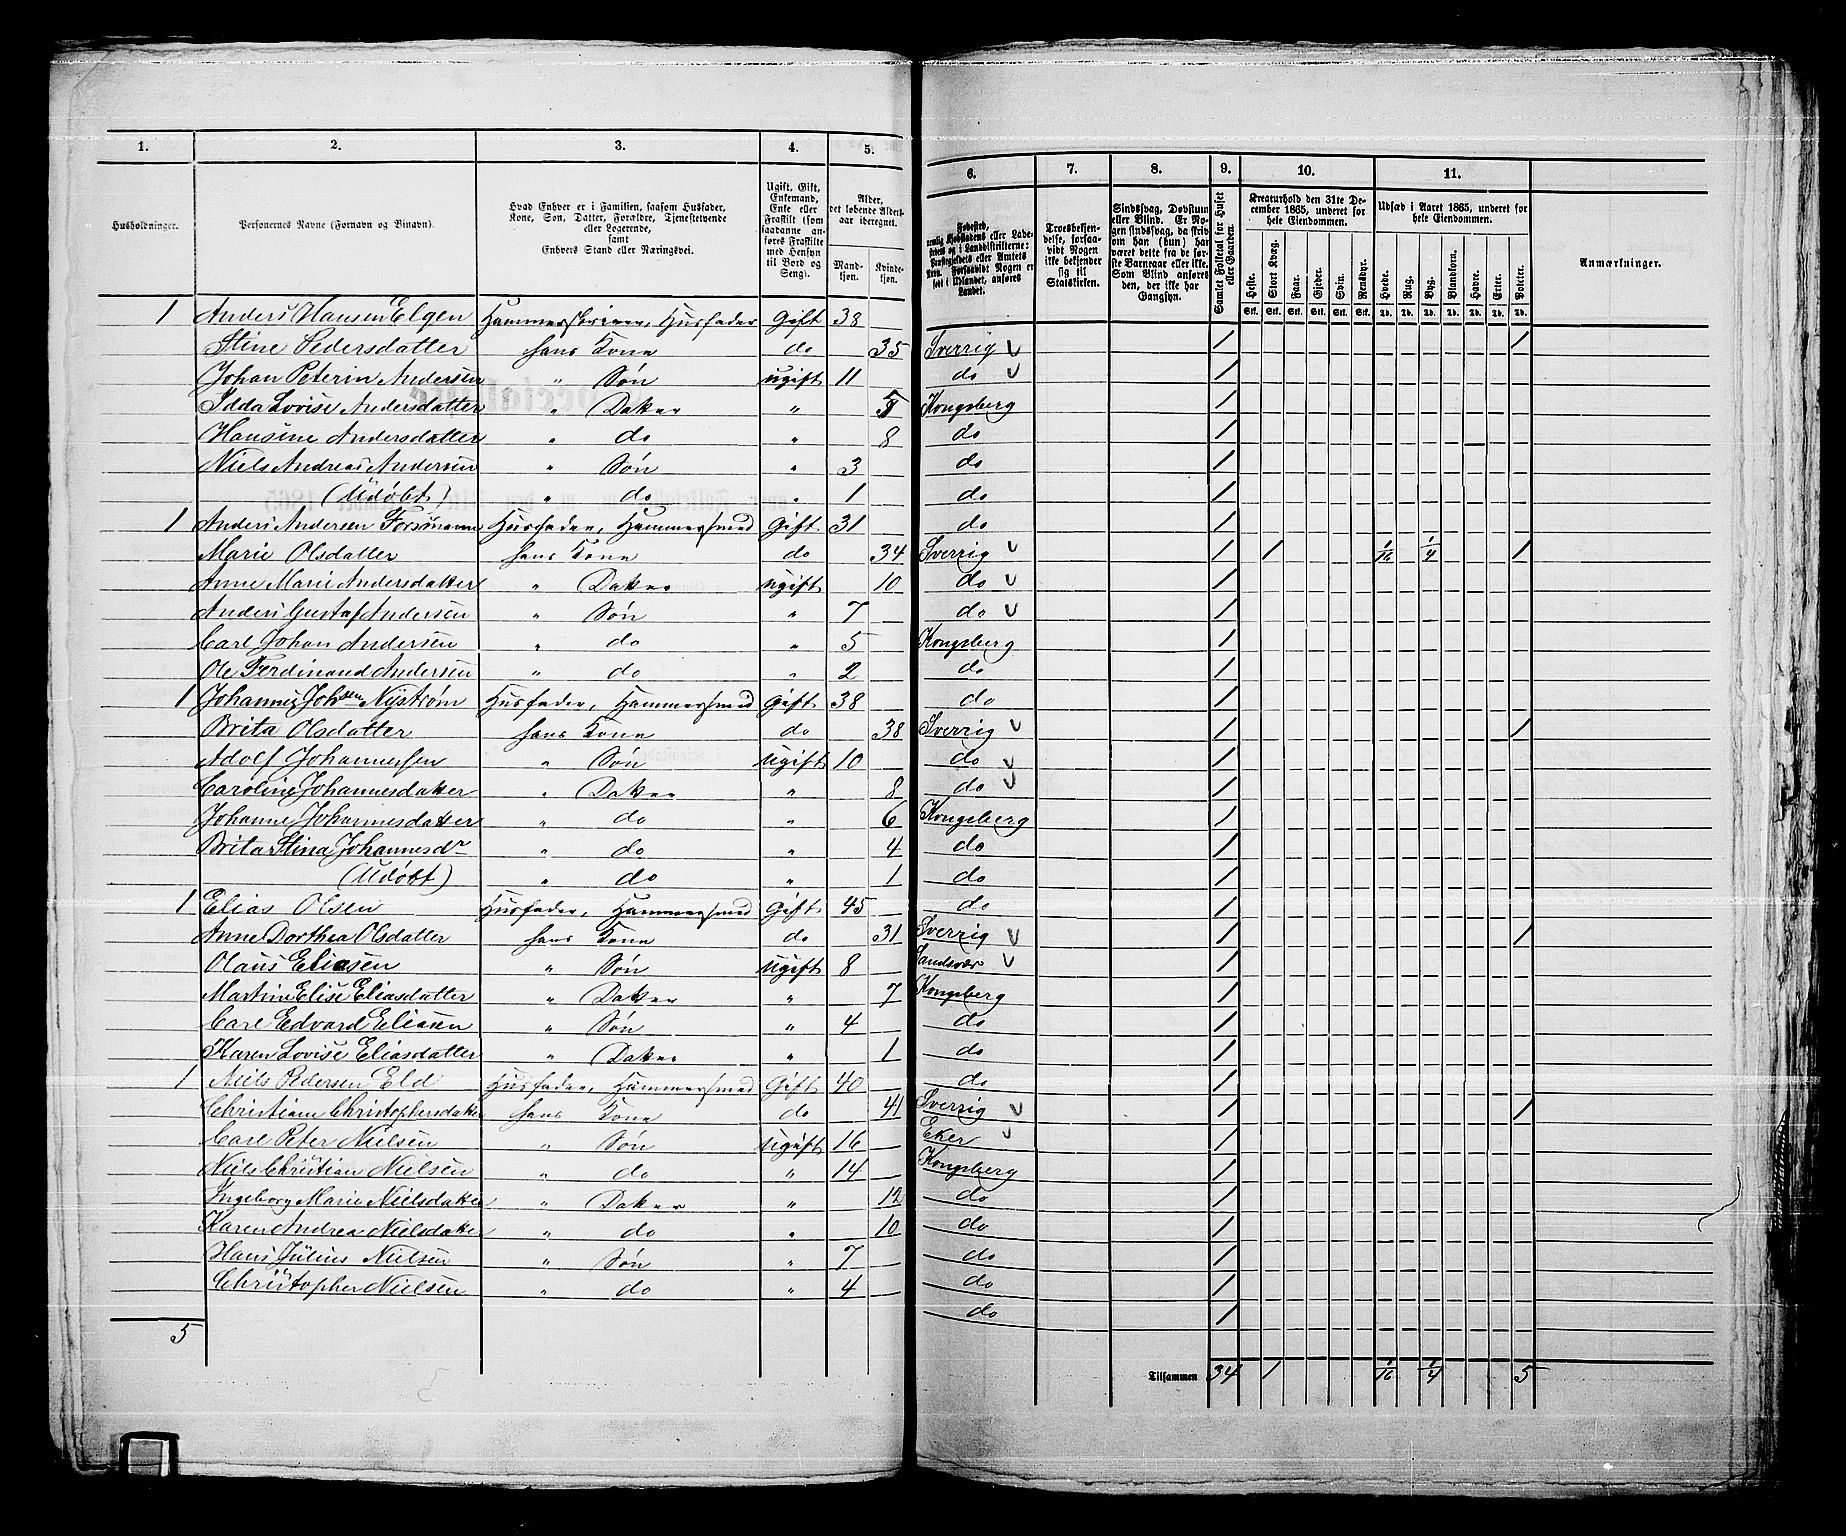 1. 2. 3. 4. 5.
Husholdninger. Personernes Navne (Fornavn og Binavn). Hvad Enhver er i Familien, saasom Husfader, Kone, Søn, Datter, Forældre, Tjenestetyende eller Logerende, samt Enhvers Stand eller Næringsvei. Ugift, Gift, Enkemand, Enke eller Fraskilt (som saadanne anføres Fraskilte med Hensyn til Bord og Seng). Alder, det løbende Aldersaar iberegnet. Mandkjøn. Kvindekjøn.
1 Anders Hansen Elgen Hammerskriver, Husfader Gift 38
Stine Pedersdatter hans Kone do 35
Johan Peterin Andersen " Søn ugift 11
Idda Lovise Andersdatter " Datter " 5
Hansine Andersdatter " do " 8
Niels Andreas Andersen " Søn " 3
(Udøbt) " do " 1
1 Anders Andersen Forsmann Husfader, Hammersmed Gift 31
Marie Olsdatter hans Kone do 34
Anne Marie Andersdatter " Datter ugift 10
Anders Gustaf Andersen " Søn " 7
Carl Johan Andersen " do " 5
Ole Ferdinand Andersen " do " 2
1 Johannes Johsen Nystrøm Husfader, Hammersmed Gift 38
Brita Olsdatter hans Kone do 38
Adolf Johannessen " Søn ugift 10
Caroline Johannesdatter " Datter " 8
Johanne Johannesdatter " do " 6
Brita Stina Johannesdr " do " 4
(Udøbt) " do " 1
1 Elias Olsen Husfader, Hammersmed Gift 45
Anne Dorthea Olsdatter hans Kone do 31
Olaus Eliasen " Søn ugift 8
Martine Elise Eliasdatter " Datter " 7
Carl Edvard Eliasen " Søn " 4
Karen Lovise Eliasdatter " Datter " 1
1 Niels Pedersen Eld Husfader, Hammersmed Gift 40
Christiane Christophersdatter hans Kone do 41
Carl Peter Nielsen " Søn ugift 16
Niels Christian Nielsen " do " 14
Ingeborg Marie Nielsdatter " Datter " 12
Karen Andrea Nielsdatter " do " 10
Hans Julius Nielsen " Søn " 7
Christopher Nielsen " do " 4
5
6. 7. 8. 9. 10. 11.
Troesbekjendelse, forsaavidt Nogen ikke bekjender sig til Statskirken. Sindssvag, Døvstum eller Blind. Er Nogen sindssvag, da skrives om han (hun) har været dette fra de første Barnaar eller ikke. Som Blind anføres den, der ikke har Gangsyn. Samlet Folketal for Huset eller Gaarden. Kreaturhold den 31te December 1865, underet for hele Eiendommen. Udsæd i Aaret 1865, underet for hele Eiendommen. Anmærkninger.
Heste. Stort Kvæg. Faar. Gjeder. Svin. Rensdyr. Hvede. Rug. Byg. Blandkorn. Havre. Erter. Poteter.
Stk. Stk. Stk. Stk. Stk. Stk. Td. Td. Td. Td. Td. Td. Td.
Sverrig V 1 1
do V 1
Kongsberg 1
do 1
do 1
do 1
do 1
Sverrig V 1 1 1/16 1/4 1
do V 1
do V 1
Kongsberg 1
do 1
do 1
Sverrig V 1 1
do V 1
do V 1
Kongsberg 1
do 1
do 1
do 1
Sverrig V 1 1
Sandsvær V 1
Kongsberg 1
do 1
do 1
do 1
Sverrig V 1 1
Eker V 1
Kongsberg 1
do 1
do 1
do 1
do 1
do 1
Tilsammen 34 1 1/16 1/4 5